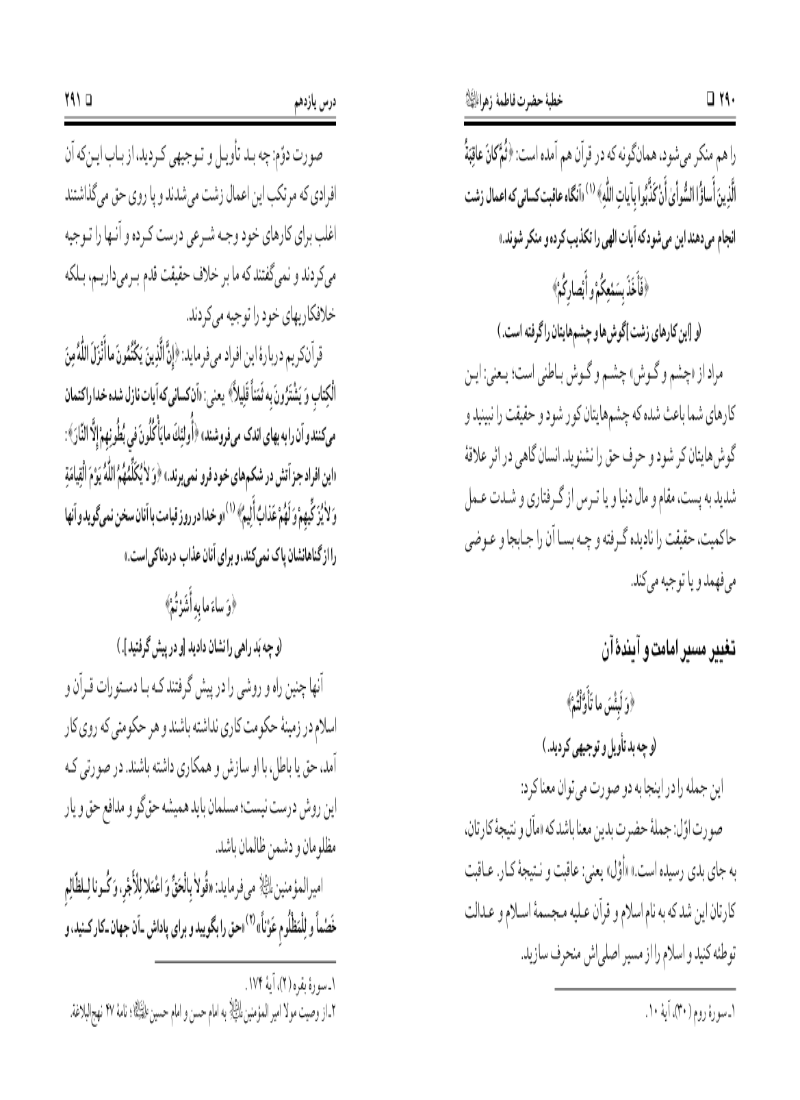 ۲۹۰ ❑ خطبهٔ حضرت فاطمهٔ زهرا
را هم منکر می‌شود، همان‌گونه که در قرآن هم آمده است: ﴿ثُمَّ کانَ عاقِبَةُ
الَّذِینَ أَساؤُا السُّوأی أَنْ کَذَّبُوا بِآیاتِ اللّٰهِ﴾(۱) «آنگاه عاقبت کسانی که اعمال زشت
انجام می‌دهند این می‌شود که آیات الهی را تکذیب کرده و منکر شوند.»
﴿فَأَخَذَ بِسَمْعِکُمْ و أَبْصارِکُمْ﴾
(و [این کارهای زشت] گوش‌ها و چشم‌هایتان را گرفته است.)
مراد از «چشم و گوش» چشم و گوش باطنی است؛ یعنی: این
کارهای شما باعث شده که چشم‌هایتان کور شود و حقیقت را نبینید و
گوش‌هایتان کر شود و حرف حق را نشنوید. انسان گاهی در اثر علاقهٔ
شدید به پست، مقام و مال دنیا و یا ترس از گرفتاری و شدت عمل
حاکمیت، حقیقت را نادیده گرفته و چه بسا آن را جابجا و عوضی
می‌فهمد و یا توجیه می‌کند.
تغییر مسیر امامت و آیندهٔ آن
﴿وَ لَبِئْسَ ما تَأَوَّلْتُمْ﴾
(و چه بد تأویل و توجیهی کردید.)
این جمله را در اینجا به دو صورت می‌توان معنا کرد:
صورت اوّل: جملهٔ حضرت بدین معنا باشد که «مآل و نتیجهٔ کارتان،
به جای بدی رسیده است.» «أوْل» یعنی: عاقبت و نتیجهٔ کار. عاقبت
کارتان این شد که به نام اسلام و قرآن علیه مجسمهٔ اسلام و عدالت
توطئه کنید و اسلام را از مسیر اصلی‌اش منحرف سازید.
۱ـ سورهٔ روم (۳۰)، آیهٔ ۱۰.
درس یازدهم ❑ ۲۹۱
صورت دوّم: چه بد تأویل و توجیهی کردید، از باب این‌که آن
افرادی که مرتکب این اعمال زشت می‌شدند و پا روی حق می‌گذاشتند
اغلب برای کارهای خود وجه شرعی درست کرده و آنها را توجیه
می‌کردند و نمی‌گفتند که ما بر خلاف حقیقت قدم برمی‌داریم، بلکه
خلافکاریهای خود را توجیه می‌کردند.
قرآن‌کریم دربارهٔ این افراد می‌فرماید: ﴿إِنَّ الَّذِینَ یَکْتُمُونَ ما أَنْزَلَ اللّٰهُ مِنَ
الْکِتابِ وَ یَشْتَرُونَ بِهِ ثَمَناً قَلِیلاً﴾ یعنی: «آن کسانی که آیات نازل شده خدا را کتمان
می‌کنند و آن را به بهای اندک می‌فروشند» ﴿أُولئِكَ ما یَأْکُلُونَ فِی بُطُونِهِمْ إِلَّا النَّارَ﴾:
«این افراد جز آتش در شکم‌های خود فرو نمی‌برند.» ﴿وَ لایُکَلِّمُهُمُ اللّٰهُ یَوْمَ الْقِیامَةِ
وَ لایُزَکِّیهِمْ وَ لَهُمْ عَذابٌ أَلِیمٌ﴾(۱) «و خدا در روز قیامت با آنان سخن نمی‌گوید و آنها
را از گناهانشان پاک نمی‌کند، و برای آنان عذاب دردناکی‌است.»
﴿وَ ساءَ ما بِهِ أَشَرْتُمْ﴾
(و چه بَد راهی را نشان دادید [و در پیش گرفتید].)
آنها چنین راه و روشی را در پیش گرفتند که با دستورات قرآن و
اسلام در زمینهٔ حکومت کاری نداشته باشند و هر حکومتی که روی کار
آمد، حق یا باطل، با او سازش و همکاری داشته باشند. در صورتی که
این روش درست نیست؛ مسلمان باید همیشه حق‌گو و مدافع حق و یار
مظلومان و دشمن ظالمان باشد.
امیرالمؤمنین می‌فرماید: «قُولاٰ بِالْحَقِّ وَ اعْمَلاٰ لِلْأَجْرِ، وَ کُونا لِلظّالِمِ
خَصْماً و لِلْمَظْلُومِ عَوْناً»(۲) «حق را بگویید و برای پاداش ـ‌آن جهان‌ـ کار کنید، و
۱ـ سورهٔ بقره (۲)، آیهٔ ۱۷۴.
۲ـ از وصیت مولا امیر المؤمنین به امام حسن و امام حسین؛ نامهٔ ۴۷ نهج‌البلاغة.